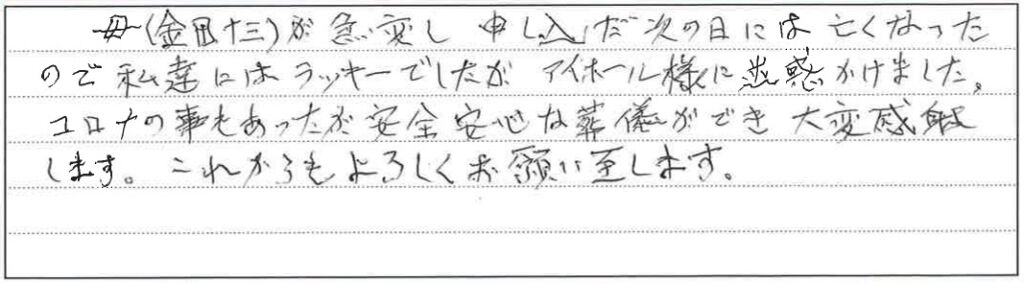 母(金田十三)が急変し 申し込んだ次の日には 亡くなった
ので私達にはラッキーでしたが アイホール様に迷惑かけました。
コロナの事もあったが安全安心な葬儀ができ 大変感謝
します。これからもよろしくお願い至します。